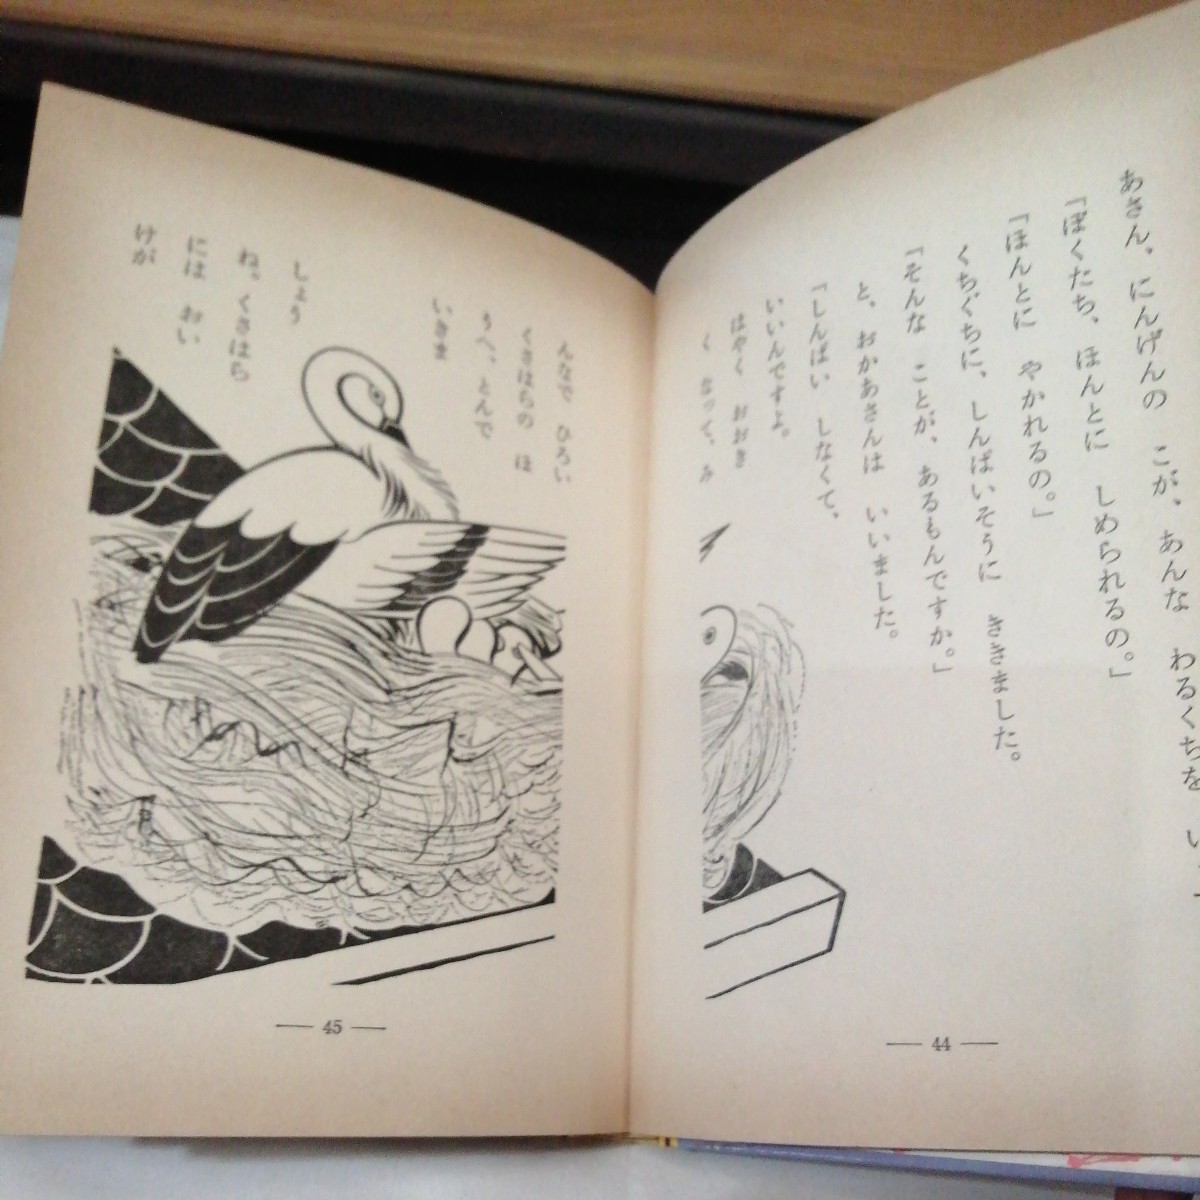 あさん、にんげんの こが、あんな わるくちを い
「ぼくたち、ほんとに しめられるの。」
「ほんとに やかれるの。」
くちぐちに、しんぱいそうに ききました。
「そんな ことが、あるもんですか。」
と、おかあさんは いいました。
「しんぱい しなくて、
いいんですよ。
はやく おおき
く なって、み
んなで ひろい
くさはらの ほ
うへ、とんで
いきま
しょう
ね。くさはら
には おい
けが
— 44 —
— 45 —